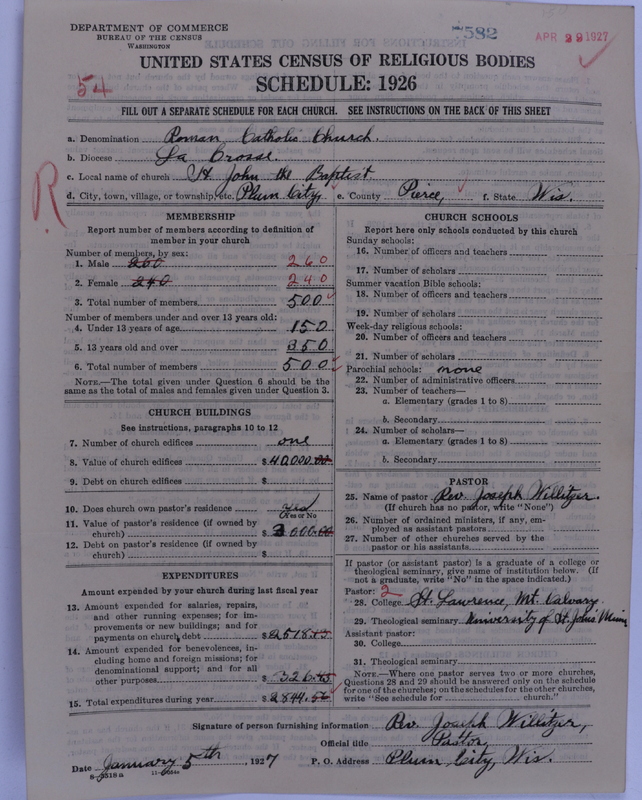 DEPARTMENT OF COMMERCE
BUREAU OF THE CENSUS
WASHINGTON
582
APR 29 1927
UNITED STATES CENSUS OF RELIGIOUS BODIES
54
SCHEDULE: 1926
FILL OUT A SEPARATE SCHEDULE FOR EACH CHURCH. SEE INSTRUCTIONS ON THE BACK OF THIS SHEET
a. Denomination Roman Catholic Church.
b. Diocese La Crosse.
c. Local name of church St John the Baptist
d. City, town, village, or township, etc. Plum City, e. County Pierce, f. State Wis.
R
MEMBERSHIP
Report number of members according to definition of
member in your church
Number of members, by sex:
1. Male 260 260
2. Female 240 240
3. Total number of members 500
Number of members under and over 13 years old:
4. Under 13 years of age 150
5. 13 years old and over 350
6. Total number of members 500
NOTE.—The total given under Question 6 should be
same as the total of males and females given under Question 3.
CHURCH BUILDINGS
See instructions, paragraphs 10 to 12
7. Number of church edifices one
8. Value of church edifices $40,000.00
9. Debt on church edifices $
10. Does church own pastor's residence yes
Yes or No
11. Value of pastor's residence (if owned by
church) $3000.00
12. Debt on pastor's residence (if owned by
church) $
EXPENDITURES
Amount expended by your church during last fiscal year
13. Amount expended for salaries, repairs,
and other running expenses; for im-
provements or new buildings; and for
payments on church debt $2518.
14. Amount expended for benevolences, in-
cluding home and foreign missions; for
denominational support; and for all
other purposes $326.
15. Total expenditures during year $2844.
CHURCH SCHOOLS
Report here only schools conducted by this church
Sunday schools:
16. Number of officers and teachers
17. Number of scholars
Summer vacation Bible schools:
18. Number of officers and teachers
19. Number of scholars
Week-day religious schools:
20. Number of officers and teachers
21. Number of scholars
Parochial schools: none
22. Number of administrative officers
23. Number of teachers—
a. Elementary (grades 1 to 8)
b. Secondary
24. Number of scholars—
a. Elementary (grades 1 to 8)
b. Secondary
PASTOR
25. Name of pastor Rev. Joseph Willitzer.
(If church has no pastor, write "None")
26. Number of ordained ministers, if any, em-
ployed as assistant pastors
27. Number of other churches served by the
pastor or his assistants
If pastor (or assistant pastor) is a graduate of a college or
theological seminary, give name of institution below. (If
not a graduate, write "No" in the space indicated.)
Pastor: 2
28. College St. Lawrence, Mt. Calvary
29. Theological seminary University of St. Johns Minn
Assistant pastor:
30. College
31. Theological seminary
NOTE.—Where one pastor serves two or more churches,
Questions 28 and 29 should be answered only on the schedule
for one of the churches; on the schedules for the other churches,
write "See schedule for church."
Signature of person furnishing information Rev. Joseph Willitzer,
Official title Pastor,
Date January 5th, 1927 P. O. Address Plum City, Wis.